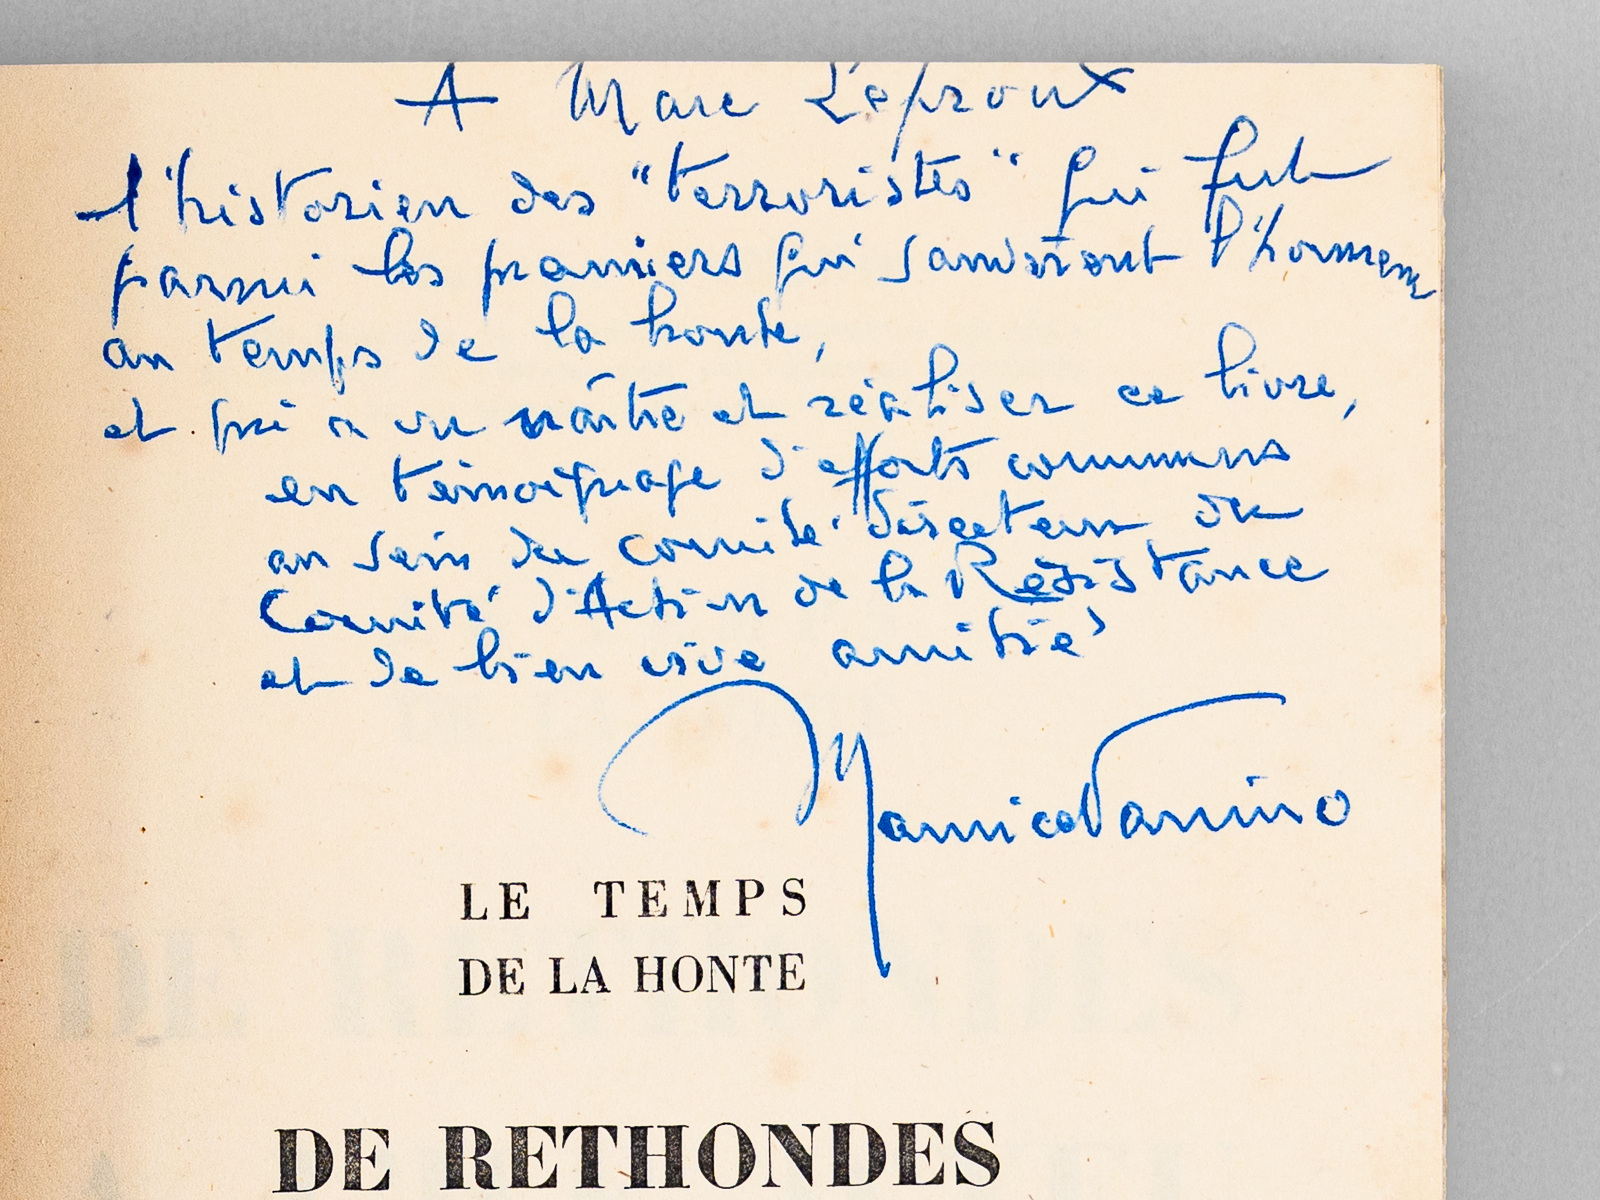 A Marc Leproux
l'historien des "terroristes" qui fut
parmi les premiers qui sauvèrent l'honneur
au temps de la honte,
et qui a vu naître et réaliser ce livre,
en témoignage d'efforts communs
au sein du comité directeur du
Comité d'Action de la Résistance
et de bien vive amitié
Maurice Vanino
LE TEMPS
DE LA HONTE
DE RETHONDES